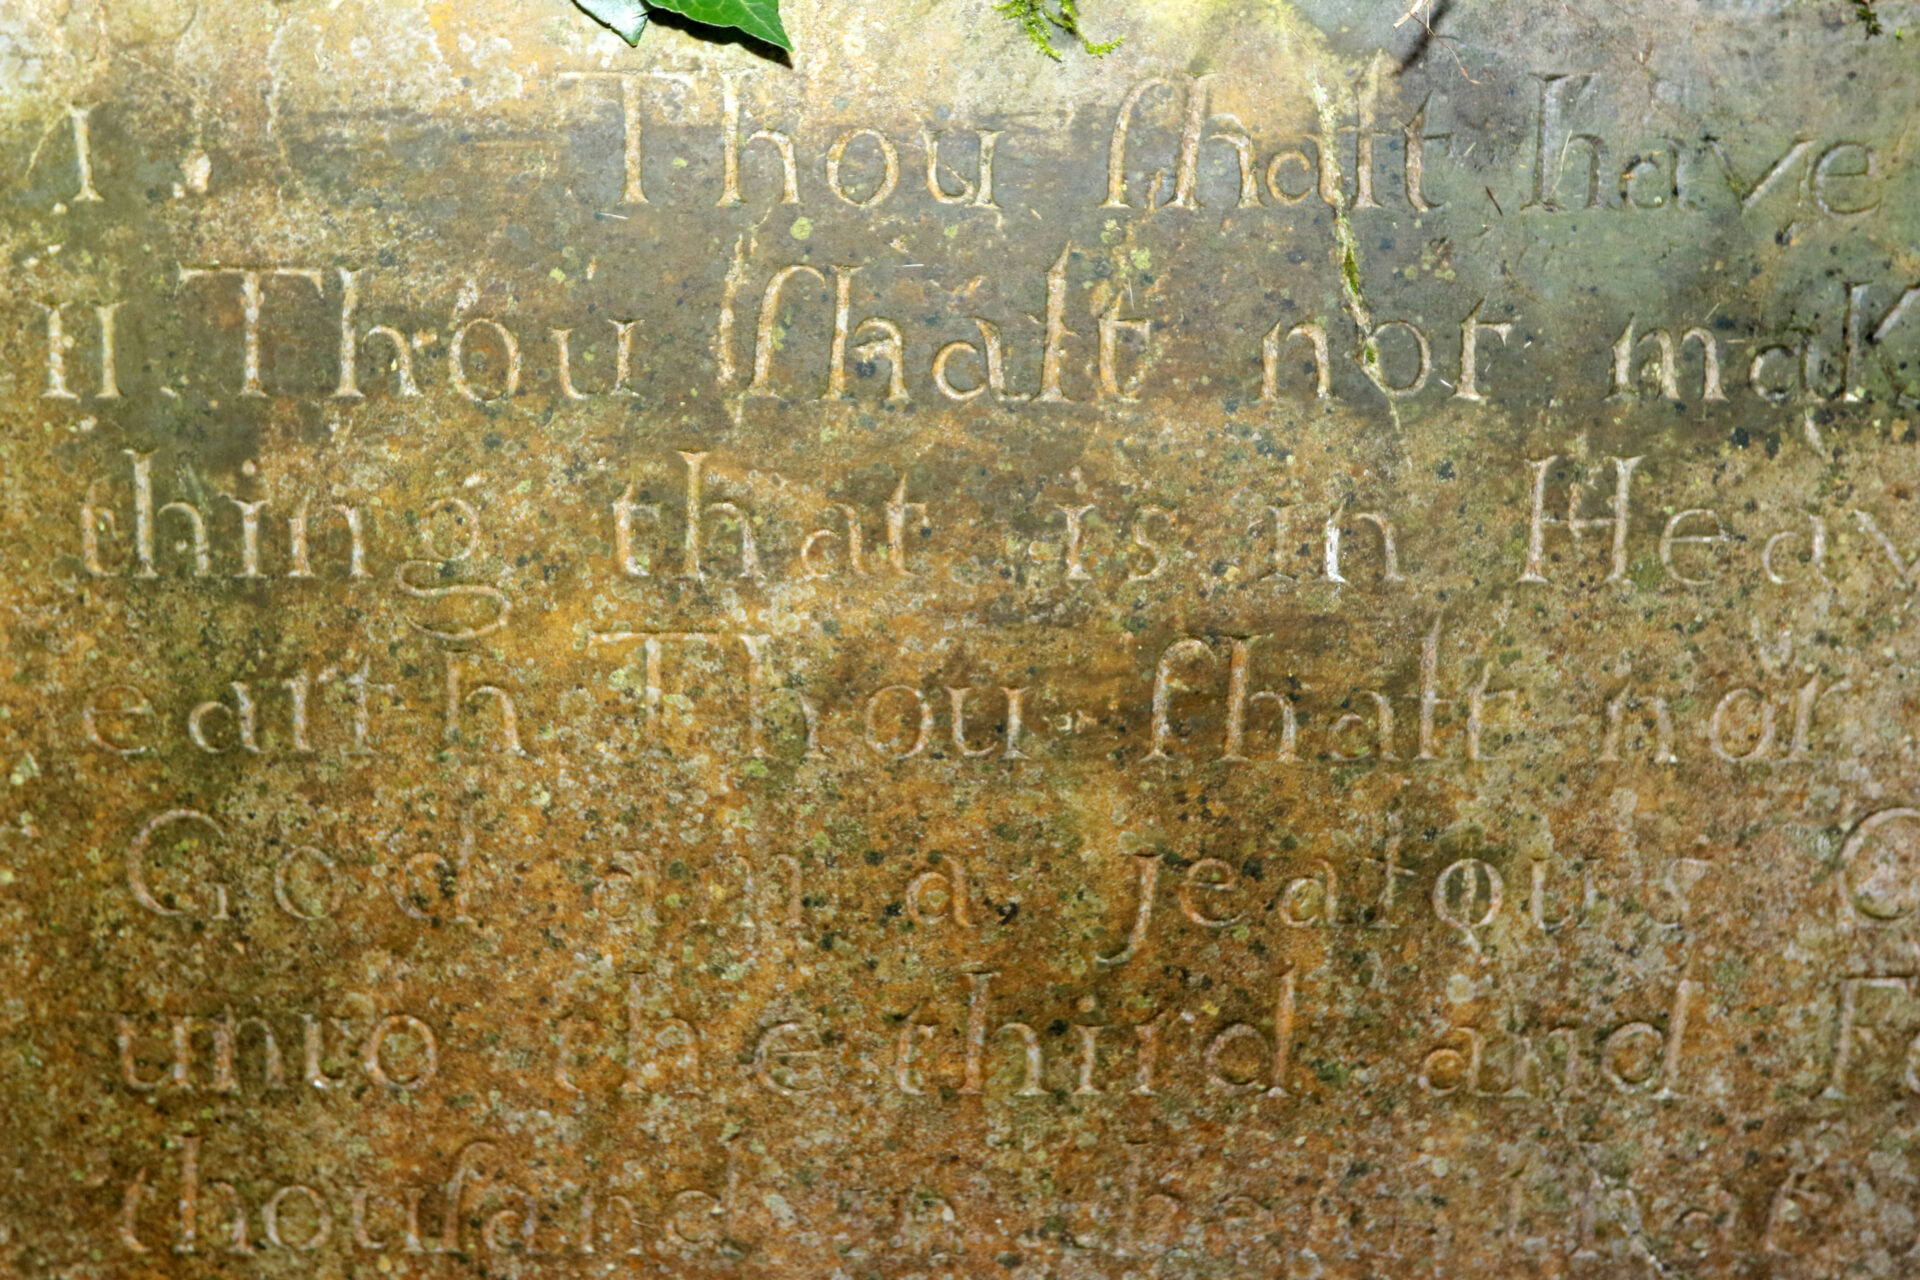 I. Thou ſhalt have
II. Thou ſhalt not mak
thing that is in Heav
earth Thou ſhalt not
God am a jealous
unto the third and
thouſand